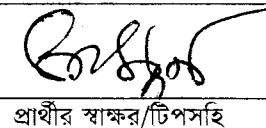 প্রার্থীর স্বাক্ষর/টিপসহি